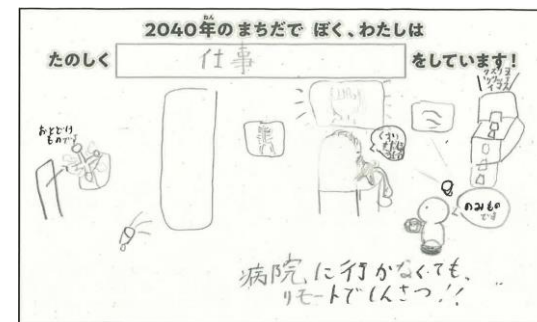 2040年のまちだで ぼく、わたしは
たのしく 仕事 をしています!
おとどけ
ものです
のみもの
です
病院に行かなくても、
リモートでしんさつ!!